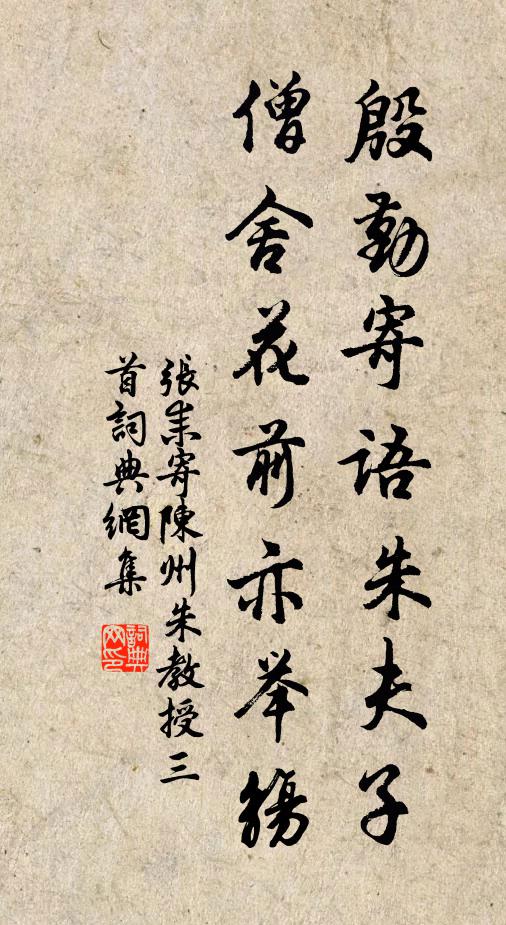 殷勤寄語朱夫子
僧舍花前亦举觴
張耒寄陳州朱教授三
首詞典網集
詞典
网印